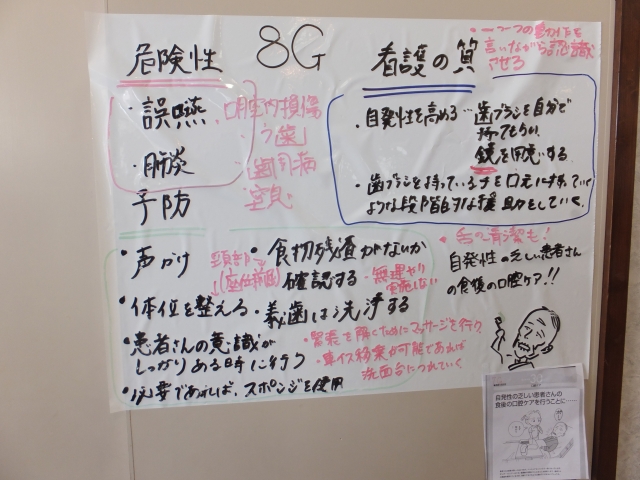 8G
危険性
・誤嚥
・肺炎
口腔内損傷
う歯
・歯周病
窒息
予防
・声かけ
頚部
(座位前屈)
・体位を整える
・患者さんの意識が
しっかりある時に行う
・必要であれば、スポンジを使用
・食物残渣がないか
確認する
・無理やり
実施しない
・義歯は洗浄する
・緊張を解くためにマッサージを行う
・車イス移乗が可能であれば
洗面台につれていく
看護の質
・一つ一つの動作を
言いながら認識
させる
・自発性を高める…歯ブラシを自分で
持ってもらい、
鏡を用意する
・歯ブラシを持っている手を口元に持っていく
ような段階的な援助をしていく。
・舌の清潔も!
自発性の乏しい患者さん
の食後の口腔ケア!!
自発性の乏しい患者さんの
食後の口腔ケアを行うことに……